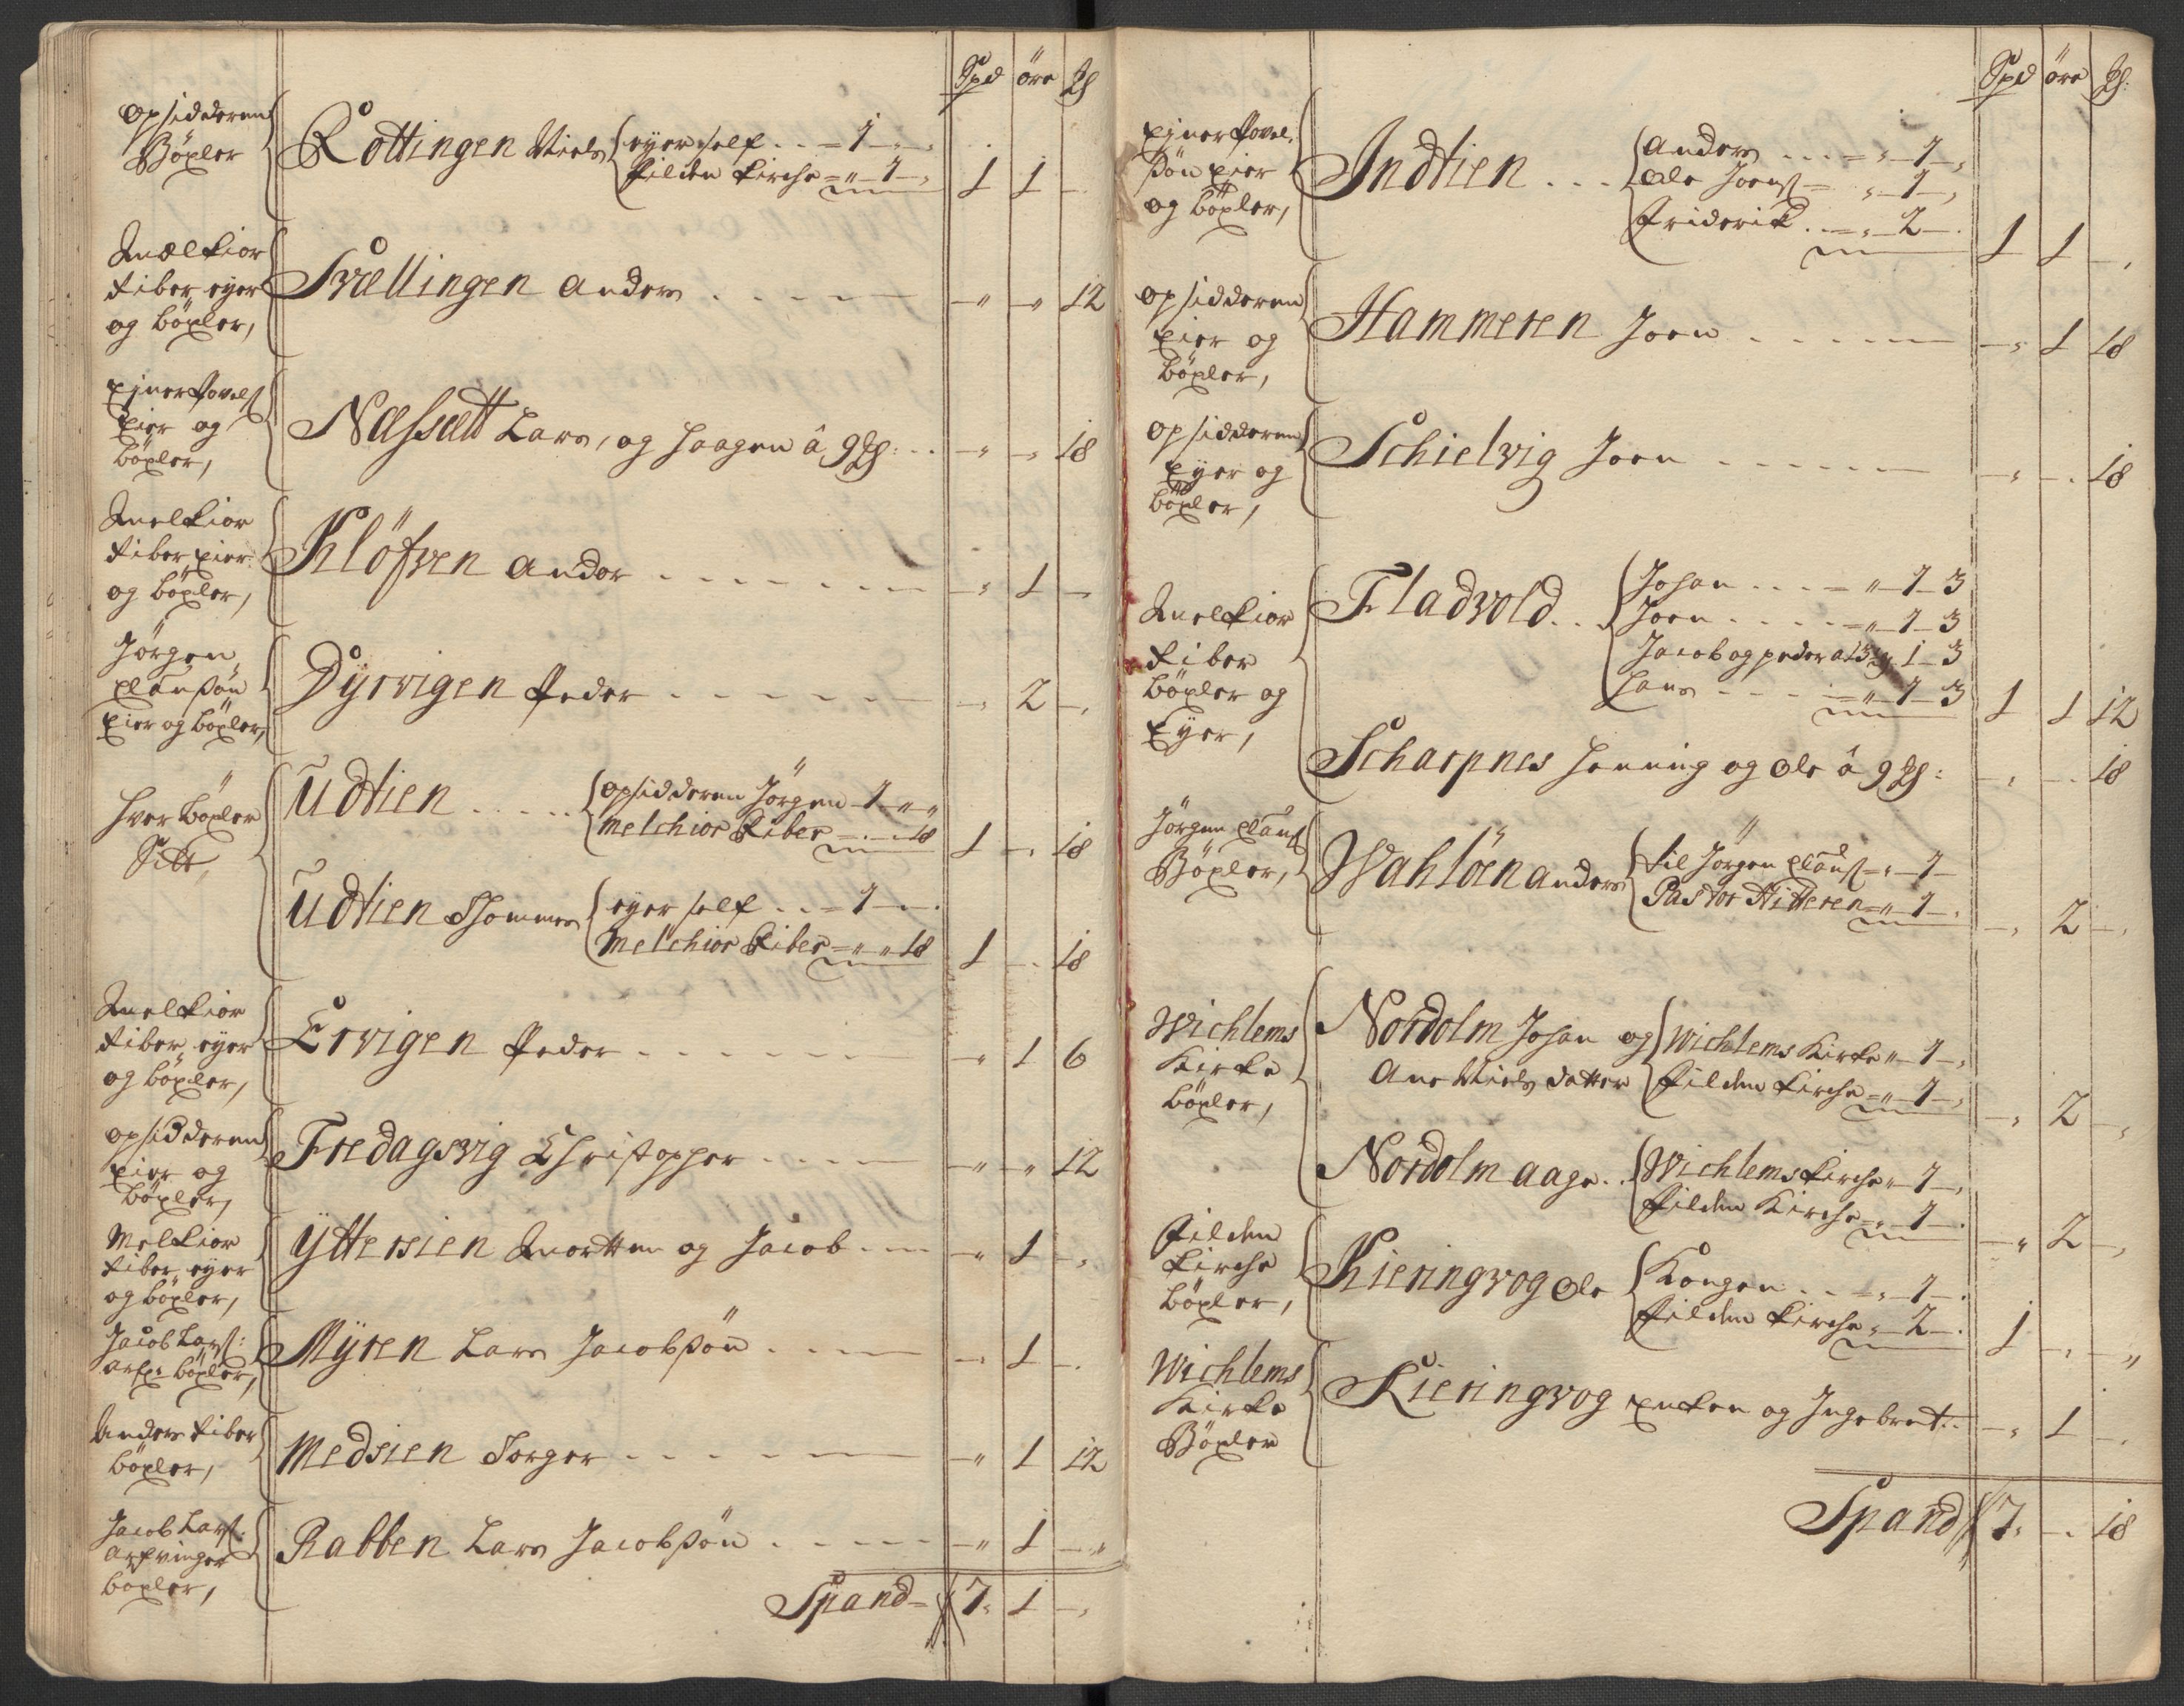 Spd öre
Opsidderen
Böxler
Rottingen Niels eyer self - - = 1 -
Filden Kirche = " 1 -
1 1 -
Mælkior
Fiber eyer
og böxler,
Svællingen Anders - " - " 12
Ejner Povels
Eier og
böxler,
Næssætt Lars, og Haagen â 9 - " - " 18
Melkior
Fiber Eier
og böxler,
Klöfven Andor - " 1 -
Jörgen
Claussön
Eier og böxler,
Dÿrvigen Peder - " 2 -
hver böxler
Sitt,
Udtien opsidderen Jörgen - 1 - " "
Melchior Fiber - . - 18
1 - 18
Udtien Thommes eyer self - - = 1 -
Melchior Fiber = " " 18
1 - 18
Melkior
Fiber eyer
og böxler,
Ervigen Peder - " 1 6
opsidderen
Eier og
böxler,
Fredagsvig Christopher - " - " 12
Melkior
Fiber eyer
og böxler,
Ÿttersien Mortten og Jacob - " 1 -
Jacob Lars:
arf: böxler,
Mÿren Lars Jacobsön - 1 -
Anders Fiber
böxler,
Medsien Torger - " 1 12
Jacob Lars:
arfvinger
böxler,
Rabben Lars Jacobsön - " 1 - "
Spand = 7 " 1 -
Spd öre
Ejner Povel
sön Eier
og böxler,
Indtien Anders - - = " 1 -
Ole Joens = " 1 -
Friderick - = " 2 -
1 1 -
opsidderen
Eier og
böxler,
Hammeren Joen - " 1 18
opsidderen
Eyer og
böxler,
Schielvig Joen - " - 18
Melkior
Fiber
böxler og
Eyer,
Fladvold Johan - - = " 1 - 3
Joen - - = " 1 - 3
Jacob og peder 1 - 3
Hans - - = " 1 - 3
1 1 12
Scharpnes Henning og Ole â 9 - " - 18
Jörgen Claus
Böxler,
Wahlöen Anders til Jörgen Claus - " 1 -
Pastor Hitteren = " 1 -
- " 2 -
Wichlems
Kirke
böxler,
Nordolm Johan og
Ane Niels datter
Wichlems Kirke " 1 -
Filden Kirche = " 1 -
- " 2 -
Nordolm Aage Wichlems Kirche " 1 -
Filden Kirche = " 1 -
- " 2 -
Filden
Kirche
böxler,
Kieringvog Ole Kongen - - = " 1 -
Filden Kirche " 2 -
1 - "
Wichlems
Kirke
Böxler
Kieringvog Encken og Ingebret - " 1 -
Spand 7 " - 18